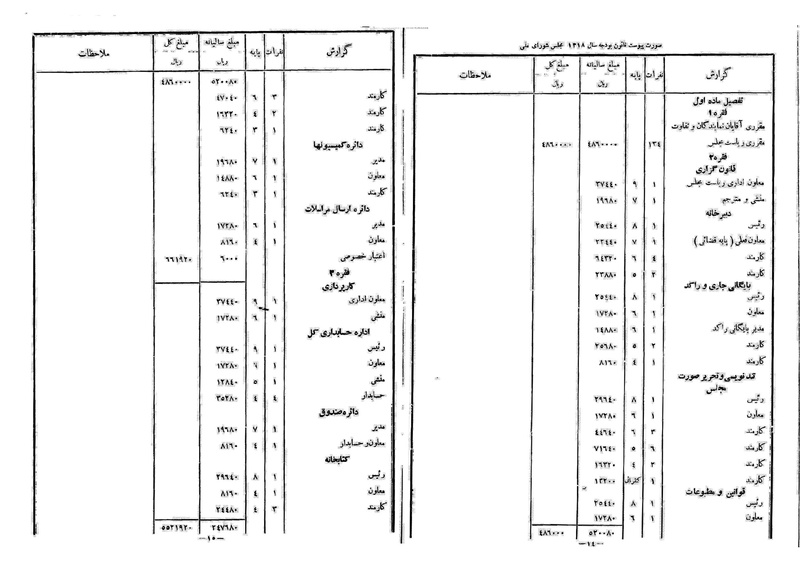 صورت پیوست قانون بودجه سال ۱۳۱۸ مجلس شورای ملی
گزارش نفرات پایه مبلغ سالیانه ریال مبلغ کل ریال ملاحظات
تفصیل ماده اول
فقره ۱
مقرری آقایان نمایندگان و تفاوت
مقرری ریاست مجلس ۱۳٤ ٤۸٦۰۰۰۰ ٤۸٦۰۰۰۰
فقره ۲
قانون گزاری
معاون اداری ریاست مجلس ۱ ۹ ۳۷٤٤۰
منشی و مترجم ۱ ۷ ۱۹٦۸۰
دبیرخانه
رئیس ۱ ۸ ۲۵٤٤۰
معاون فعلی ( پایه قضائی ) ۱ ۷ ۲۲٤٤۰
کارمند ٤ ٦ ٦٤۳۲۰
کارمند ۲ ۵ ۲۳۸۸۰
بایگانی جاری و راکد
رئیس ۱ ۸ ۲۵٤٤۰
معاون ۱ ٦ ۱۷۲۸۰
مدیر بایگانی راکد ۱ ٦ ۱٤۸۸۰
کارمند ۲ ۵ ۲۵٦۸۰
کارمند ۱ ٤ ۸۱٦۰
تندنویسی و تحریر صورت
مجلس
رئیس ۱ ۸ ۲۹٦٤۰
معاون ۱ ٦ ۱۷۲۸۰
کارمند ۳ ٦ ٤٤٦٤۰
کارمند ٦ ۵ ۷۱٦٤۰
کارمند ۲ ٤ ۱٦۳۲۰
کارمند ۱ ۱۳۲۰۰
قوانین و مطبوعات
رئیس ۱ ۸ ۲۵٤٤۰
معاون ۱ ٦ ۱۷۲۸۰
۵۲۰۰۸۰ ٤۸٦۰۰۰
—۱٤—
گزارش نفرات پایه مبلغ سالیانه ریال مبلغ کل ریال ملاحظات
۵۲۰۰۸۰ ٤۸٦۰۰۰۰
کارمند ۳ ٦ ٤۷۰٤۰
کارمند ۲ ٤ ۱٦۳۲۰
کارمند ۱ ۳ ٦۲٤۰
دائره کمیسیونها
مدیر ۱ ۷ ۱۹٦۸۰
معاون ۱ ٦ ۱٤۸۸۰
کارمند ۱ ۳ ٦۲٤۰
دائره ارسال مراسلات
مدیر ۱ ٦ ۱۷۲۸۰
معاون ۱ ٤ ۸۱٦۰
اعتبار خصوصی ٦۰۰۰ ٦٦۱۹۲۰
فقره ۳
کارپردازی
معاون اداری ۱ ۹ ۳۷٤٤۰
منشی ۱ ٦ ۱۷۲۸۰
اداره حسابداری کل
رئیس ۱ ۹ ۳۷٤٤۰
معاون ۱ ۱۷۲۸۰
منشی ۱ ۵ ۱۲۸٤۰
حسابدار ٤ ٤ ۳۵۲۸۰
دائره صندوق
مدیر ۱ ۷ ۱۹٦۸۰
معاون و حسابدار ۱ ٤ ۸۱٦۰
کتابخانه
رئیس ۱ ۸ ۲۹٦٤۰
معاون ۱ ٤ ۸۱٦۰
کارمند ۳ ٤ ۲٤٤۸۰
۲٤۷٦۸۰ ۵۵۲۱۹۲۰
—۱۵—